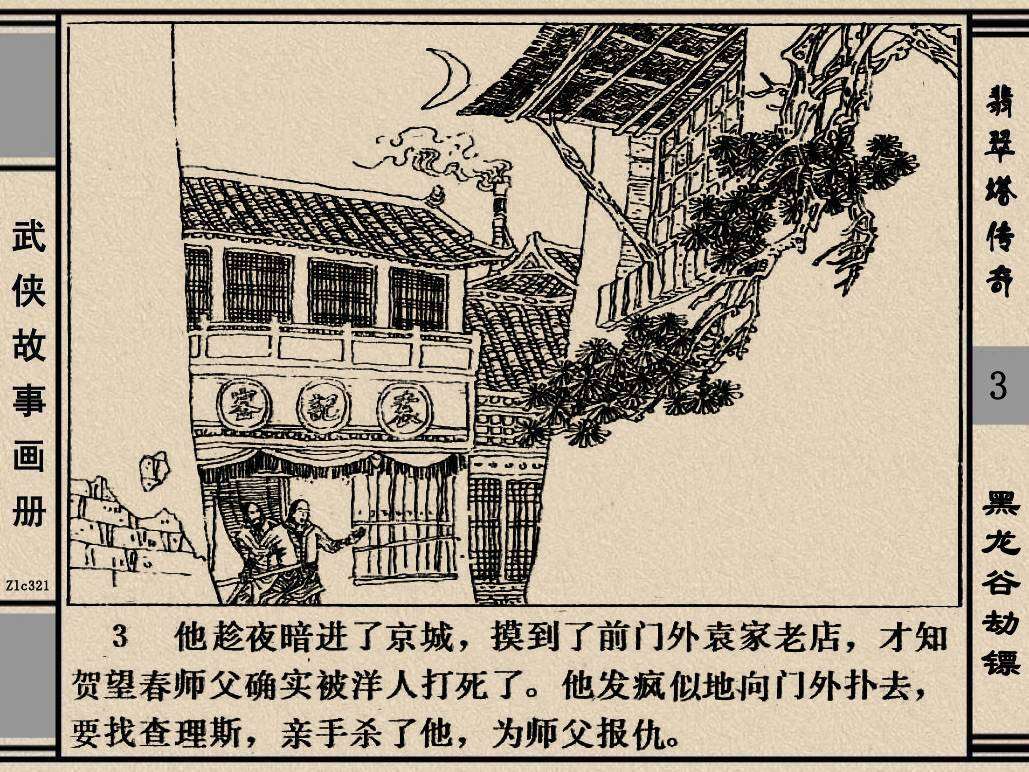 武侠故事画册
Zlc321
客 記 袁
翡翠塔传奇
3
黑龙谷劫镖
3 他趁夜暗进了京城，摸到了前门外袁家老店，才知
贺望春师父确实被洋人打死了。他发疯似地向门外扑去，
要找查理斯，亲手杀了他，为师父报仇。